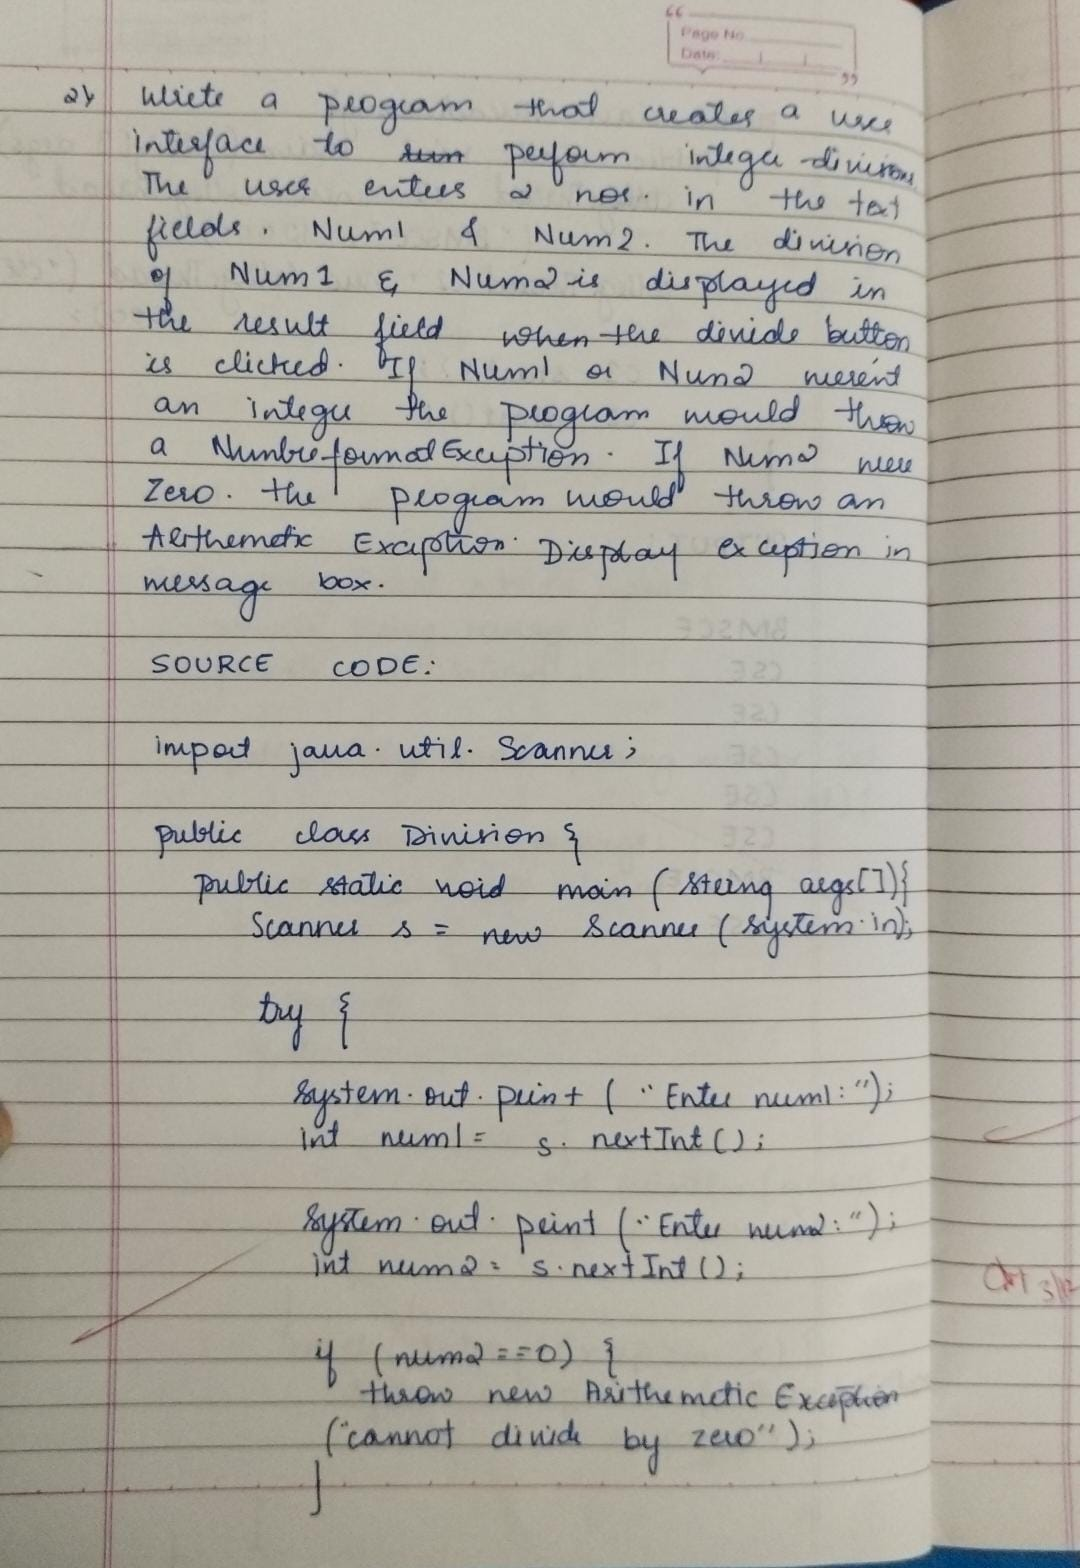 Page No.
Date:
2) Write a program that creates a user
interface to run perform integer division
The user enters 2 nos. in the text
fields. Num1 & Num2. The division
of Num1 & Num2 is displayed in
the result field when the divide button
is clicked. If Num1 or Num2 weren't
an integer the program would throw
a NumberformatException. If Num2 were
Zero. the program would throw an
Arithemetic Exception. Display exception in
message box.
SOURCE CODE:
import java.util.Scanner;
public class Division {
public static void main (String args[]){
Scanner s = new Scanner (System.in);
try {
System.out.print ("Enter num1:");
int num1 = s.nextInt();
System.out.print ("Enter num2:");
int num2 = s.nextInt();
if (num2==0) {
throw new Arithemetic Exception
("cannot divide by zero");
}